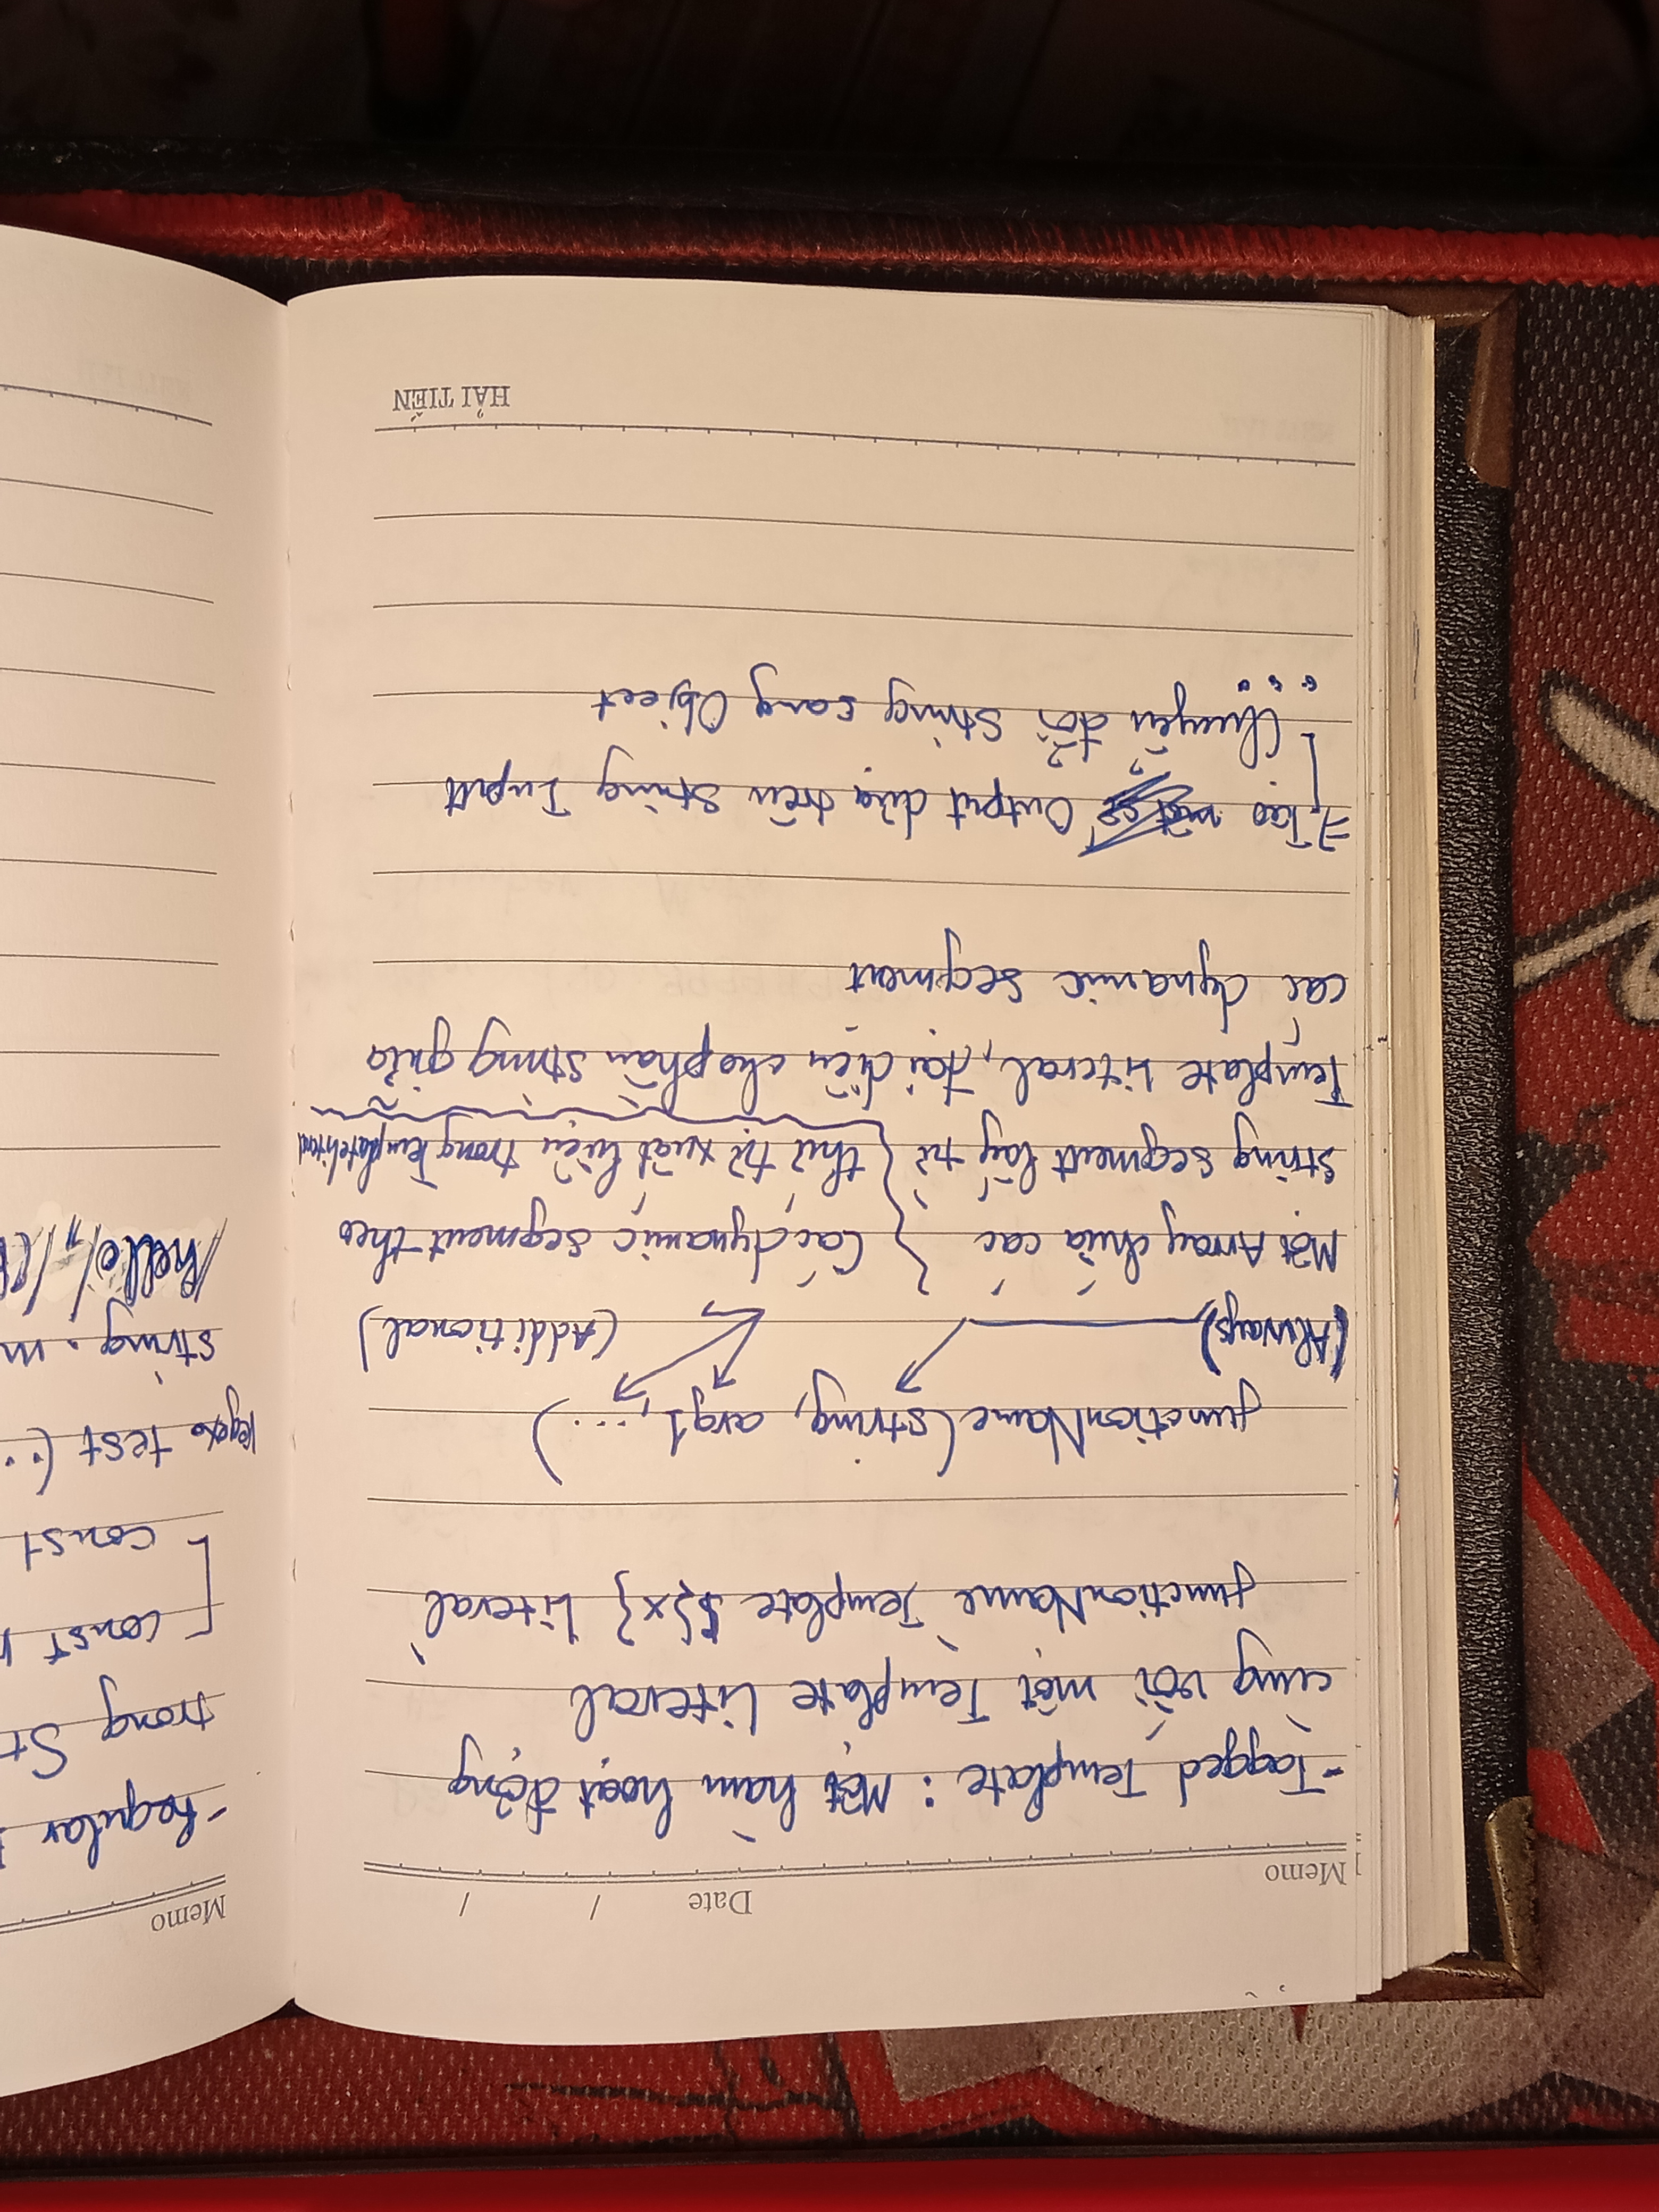 Memo Date / /
- Tagged Template : Một hàm hoạt động
cùng với một Template Literal
functionName `Template ${x} Literal`
functionName(string, arg1, ...)
(Always) (Additional)
Một Array chứa các
string segment lấy từ
Template Literal, đại diện cho phần string giữa
các dynamic segment
Các dynamic segment theo
thứ tự xuất hiện trong Template Literal
=> Tạo Output dựa trên string Input
Chuyển đổi string sang Object
...
HẢI TIẾN
Memo
- Regular
trong St
const
const
regex. test (..
string. m
/hello/, /(